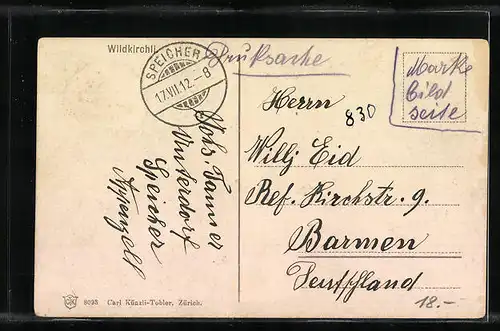 Wildkirchli
SPEICHER
17.VII.12.-8
Druksache
Marke
bild
seite
Herrn
830
Willj Eid
Ref. Kirchstr. 9.
Barmen
Deutschland
18.-
Johs. Tanner
Unterdorf
Speicher
Appenzell
8093 Carl Künzli-Tobler, Zürich.